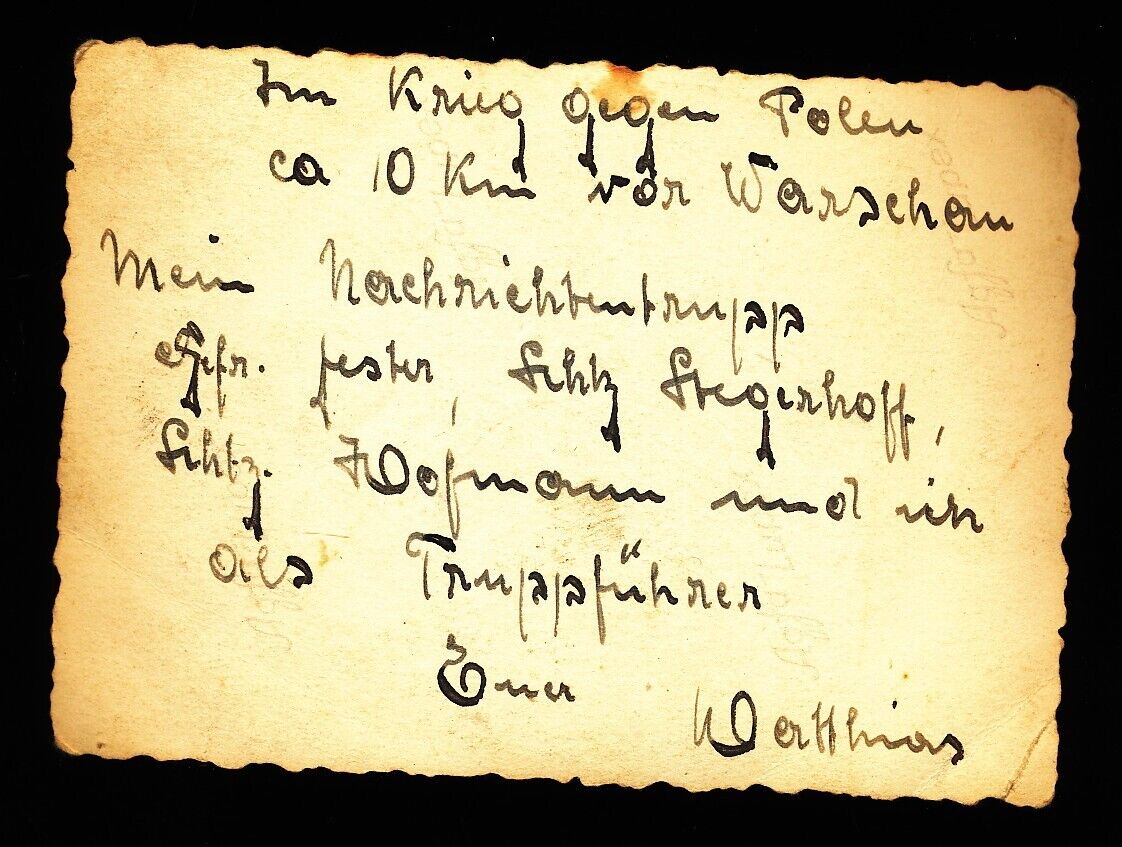 Im Krieg gegen Polen
ca 10 Km vor Warschau
Mein Nachrichtentrupp
Gefr. Fester, Schtz Stegerhoff,
Schtz. Hofmann und ich
als Truppführer
Euer
Matthias